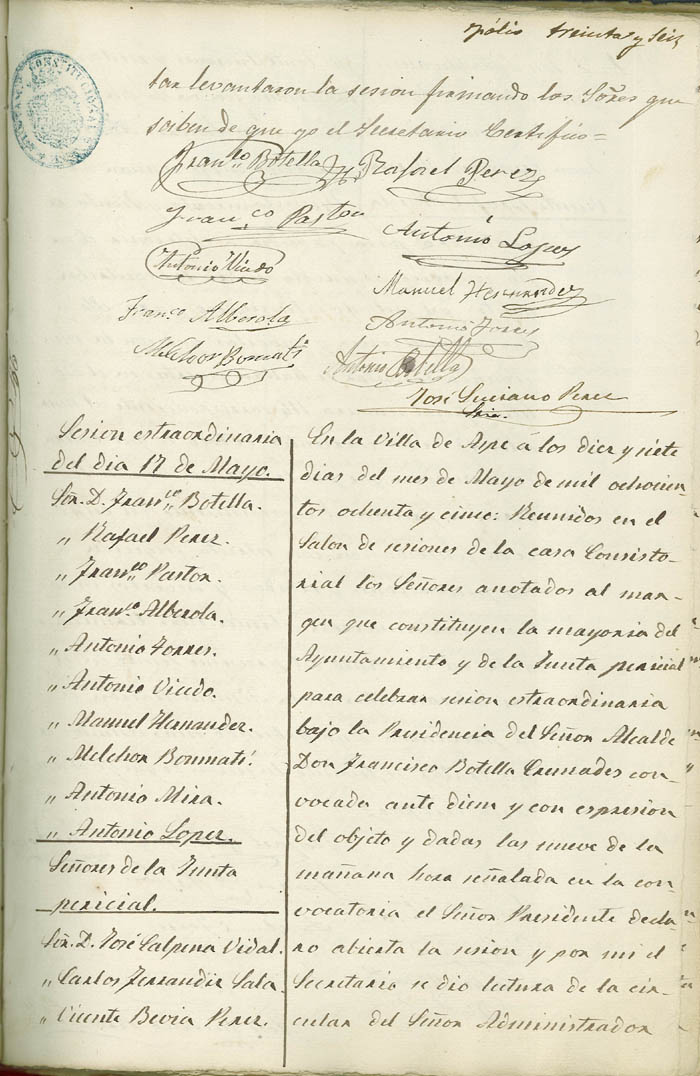 folio treinta y seis
CONSTITUCIONAL
tar levantaron la sesion firmando los Sõres que
saben de que yo el Secretario Certifico=
Fran.co Botella Rafael Perez
Fran.co Pastor Antonio Lopez
Antonio Vicedo Manuel Hernandez
Fran.co Alberola Antonio Torres
Melchor Bonmati Antonio Botella
José Luciano Perez
Srio.
Sesion estraordinaria
del dia 17 de Mayo.
Sõr. D. Fran.co Botella.
„ Rafael Perez.
„ Fran.co Pastor.
„ Fran.co Alberola.
„ Antonio Torres.
„ Antonio Vicedo.
„ Manuel Hernandez.
„ Melchor Bonmatí.
„ Antonio Mira.
„ Antonio Lopez.
Señores de la Junta
pericial.
Sõr. D. José Calpena Vidal.
„ Carlos Ferrandiz Sala.
„ Vicente Bevia Perez.
En la Villa de Aspe á los diez y siete
dias del mes de Mayo de mil ochocien-
tos ochenta y cinco: Reunidos en el
Salon de sesiones de la casa Consisto-
rial los Señores anotados al mar-
gen que constituyen la mayoria del
Ayuntamiento y de la Junta pericial
para celebrar sesion estraordinaria
bajo la Presidencia del Señor Alcalde
Don Francisco Botella Cremades con-
vocada ante diem y con espresion
del objeto y dadas las nueve de la
mañana hora señalada en la con-
vocatoria el Señor Presidente decla-
ro abierta la sesion y por mi el
Secretario se dio lectura de la cir-
cular del Señor Administrador